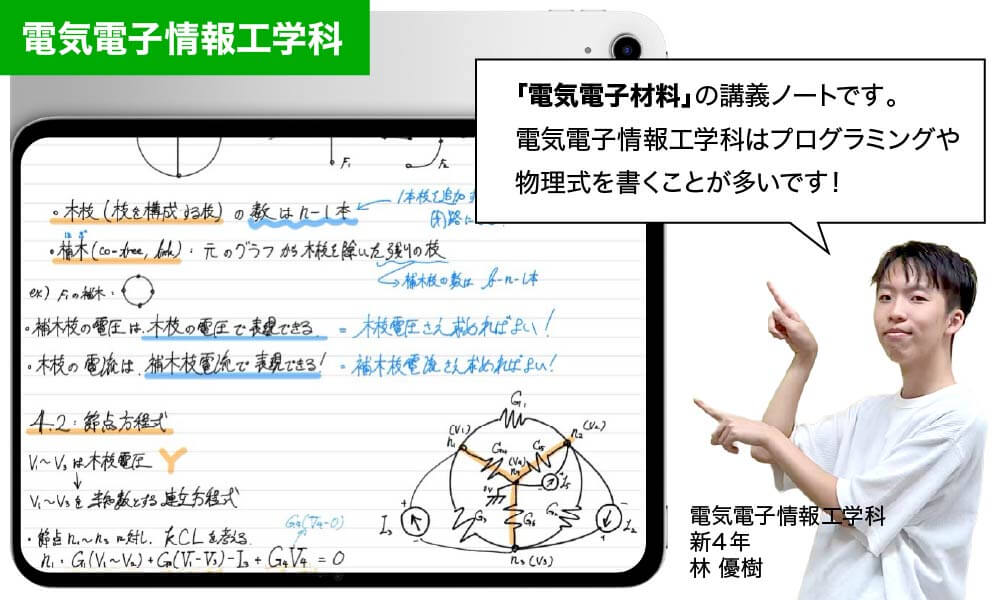 電気電子情報工学科
「電気電子材料」の講義ノートです。
電気電子情報工学科はプログラミングや
物理式を書くことが多いです!
F₁
F₂
・木枝(枝を構成する枝)の数はn-1本
1本枝を追加す
閉路に
・補木(co-tree, link):元のグラフから木枝を除いた残りの枝
補木枝の数は b-n-1本
ex) F₁の補木:
・補木枝の電圧は、木枝の電圧で表現できる
= 木枝電圧さえ求めればよい!
・木枝の電流は、補木枝電流で表現できる!
= 補木枝電流さえ求めればよい!
4.2:節点方程式
V₁~V₃は木枝電圧
V₁~V₃を未知数とする連立方程式
G₄(V₄-0)
・節点n₁~n₃に対し、KCLを考える
n₁・G₁(V₁~V₂)+G₃(V₁-V₃)-I₃+G₄V₄=0
G₁
(V₁)
n₁
(V₂)
n₂
G₄
G₅
(V₄)
n₄
I₅
G₃
G₆
G₂
I₃
I₂
n₃(V₃)
電気電子情報工学科
新4年
林 優樹